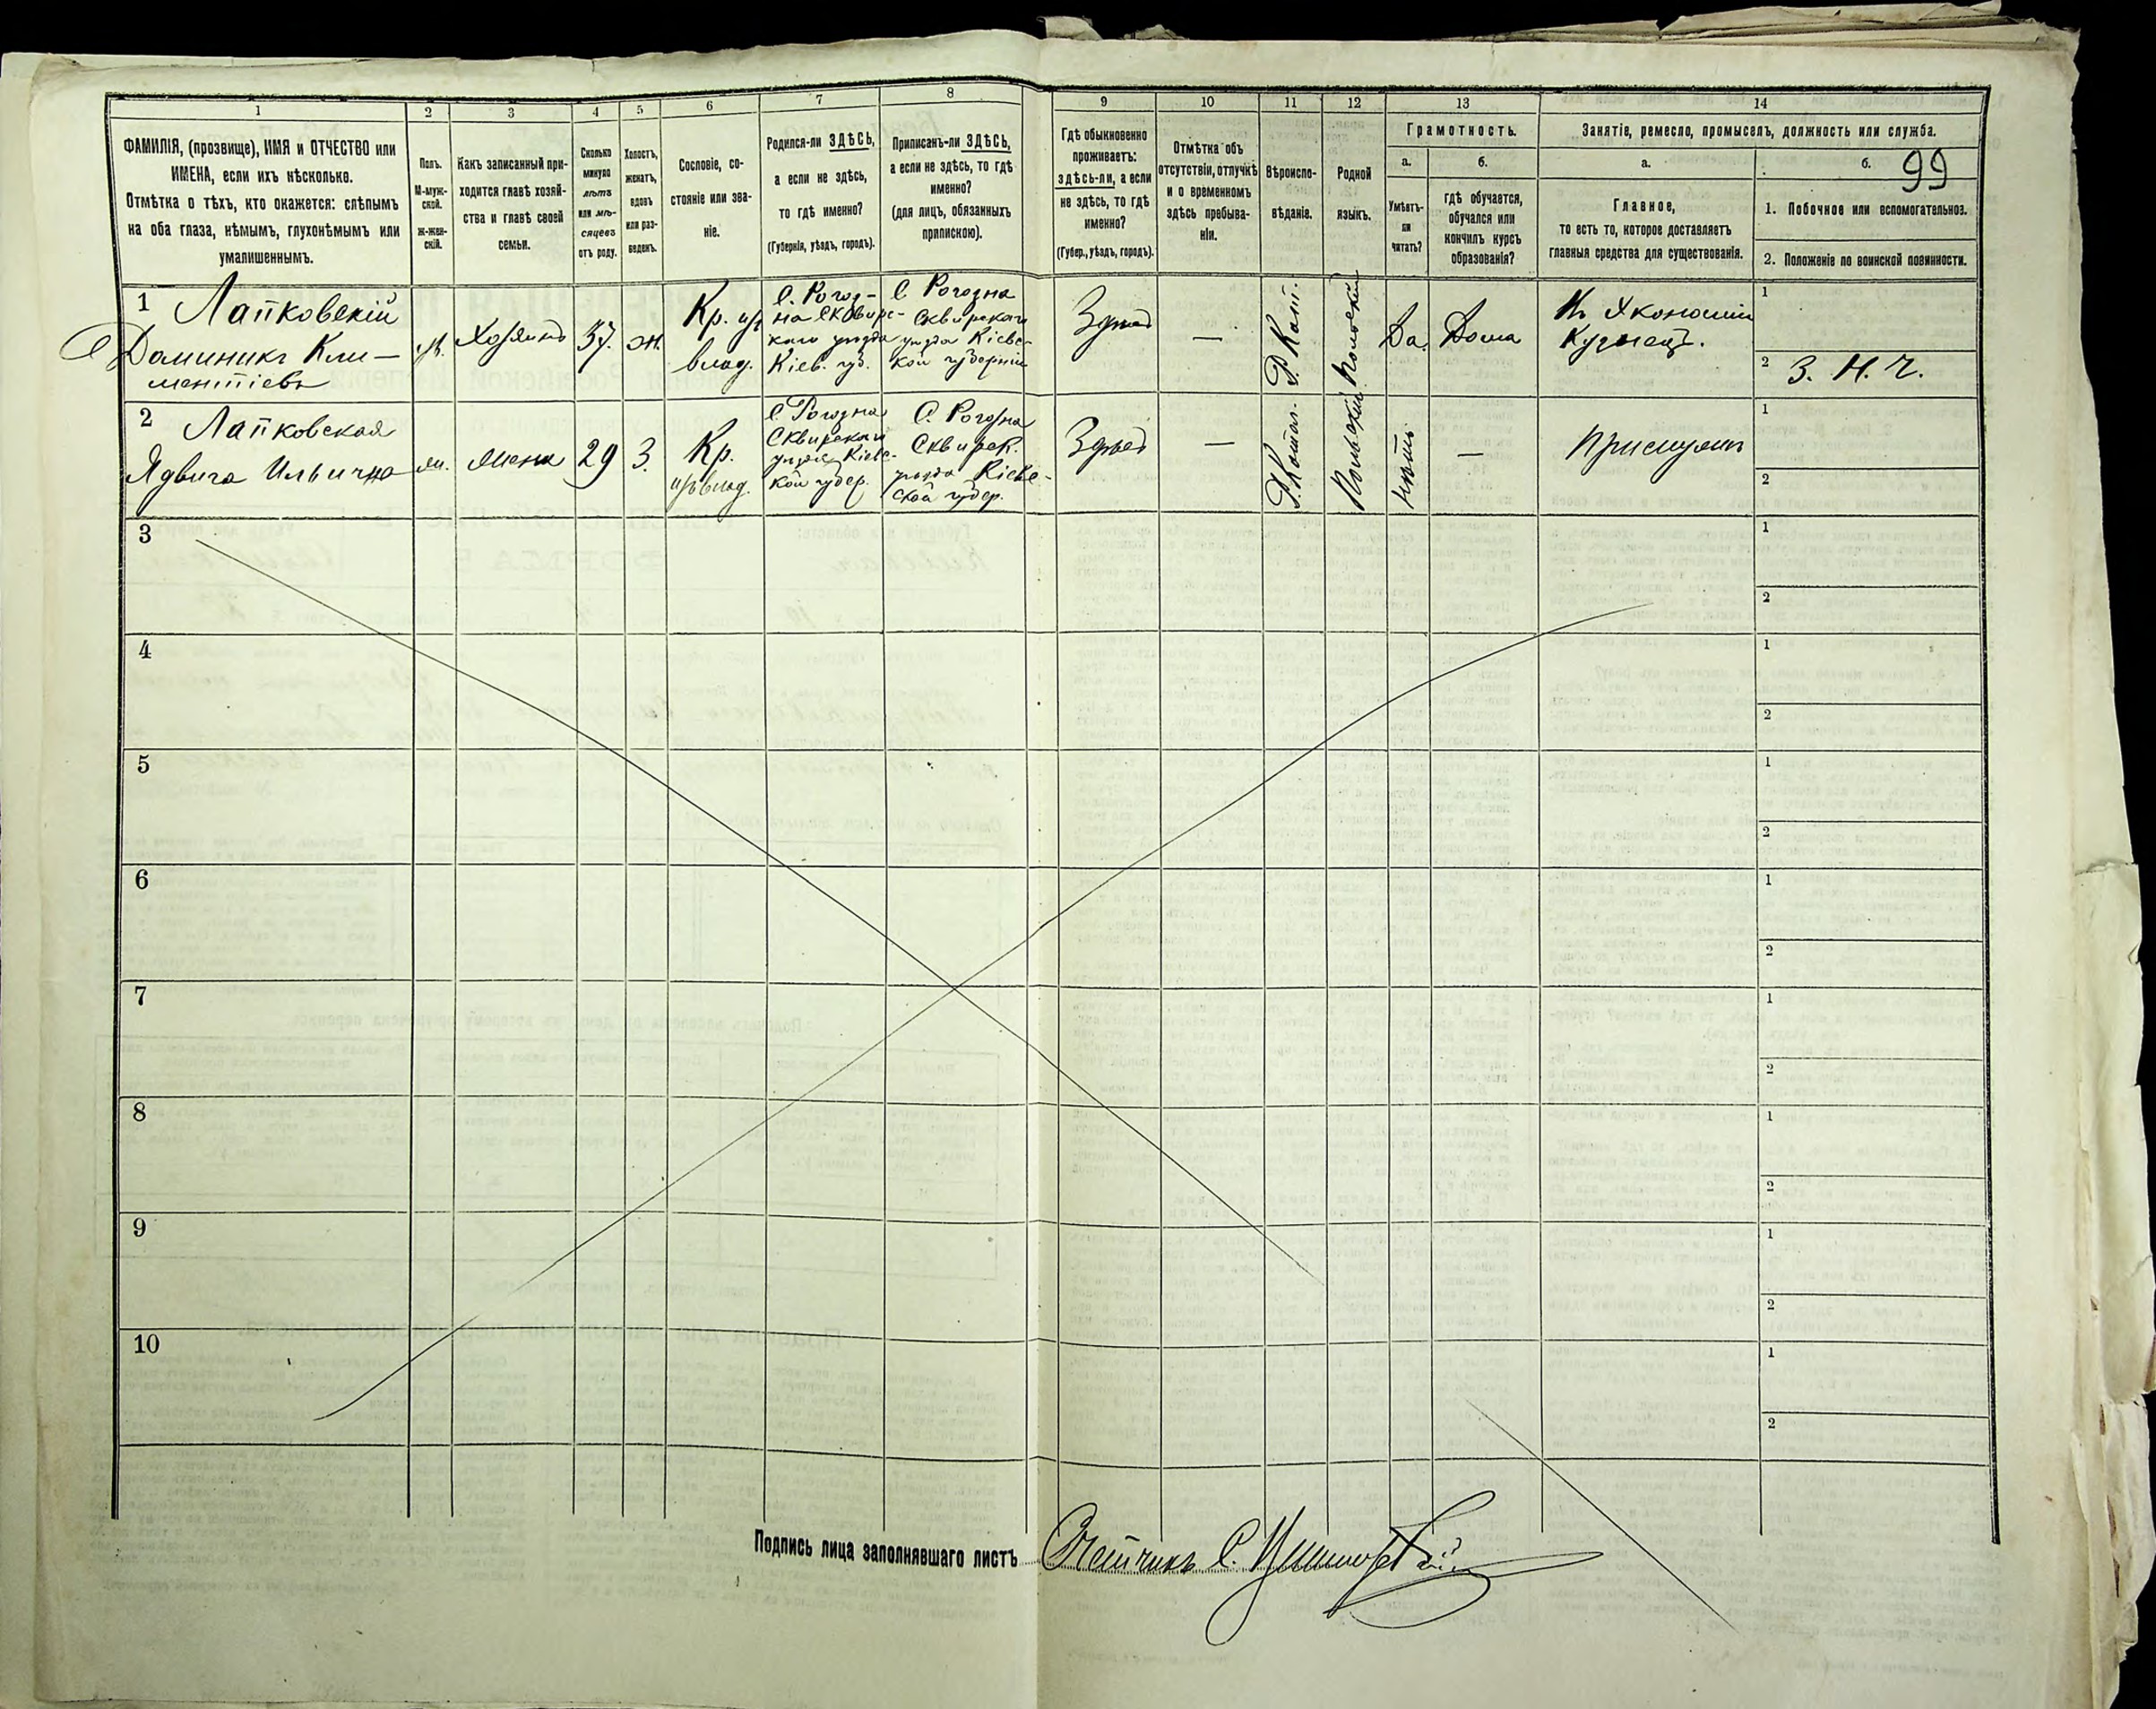 1
2
3
4
5
6
7
8
9
10
11
12
13
14
ФАМИЛІЯ, (прозвище), ИМЯ и ОТЧЕСТВО или
ИМЕНА, если ихъ нѣсколько.
Отмѣтка о тѣхъ, кто окажется: слѣпымъ
на оба глаза, нѣмымъ, глухонѣмымъ или
умалишеннымъ.
Полъ.
М-муж-
ской.
ж-жен-
скій.
Какъ записанный при-
ходится главѣ хозяй-
ства и главѣ своей
семьи.
Сколько
минуло
лѣтъ
или мѣ-
сяцевъ
отъ роду.
Холостъ,
женатъ,
вдовъ
или раз-
веденъ.
Сословіе, со-
стояніе или зва-
ніе.
Родился-ли ЗДѢСЬ,
а если не здѣсь,
то гдѣ именно?
(Губернія, уѣздъ, городъ).
Приписанъ-ли ЗДѢСЬ,
а если не здѣсь, то гдѣ
именно?
(для лицъ, обязанныхъ
припискою).
Гдѣ обыкновенно
проживаетъ:
здѣсь-ли, а если
не здѣсь, то гдѣ
именно?
(Губер., уѣздъ, городъ).
Отмѣтка объ
отсутствіи, отлучкѣ
и о временномъ
здѣсь пребыва-
ніи.
Вѣроиспо-
вѣданіе.
Родной
языкъ.
Грамотность.
а.
б.
Умѣетъ-
ли
читать?
гдѣ обучается,
обучался или
кончилъ курсъ
образованія?
Занятіе, ремесло, промыселъ, должность или служба.
а.
б.
99
Главное,
то есть то, которое доставляетъ
главныя средства для существованія.
1. Побочное или вспомогательное.
2. Положеніе по воинской повинности.
1 Лапковскій
Доминикъ Кли-
ментіевъ
М.
Хозяинъ
37.
ж.
Кр. изъ
влад.
С. Рогоз-
на Сквирс-
каго уѣзда
Кіев. губ.
С. Рогозна
Сквирскаго
уѣзда Кіевс-
кой губерніи
Здѣсь
—
Р. Кат.
Польскій
Да.
Дома
Въ Экономіи
Кузнецъ.
1
2 З. Н. Ч.
2 Лапковская
Ядвига Ильична
ж.
Жена
29
З.
Кр.
изъ влад.
С. Рогозна
Сквирскаго
уѣзда Кіевс-
кой губер.
С. Рогозна
Сквирск.
уѣзда Кіевс-
ской губер.
Здѣсь
—
Р. Катол.
Польскій
нѣтъ
—
При мужѣ
1
2
3
1
2
4
1
2
5
1
2
6
1
2
7
1
2
8
1
2
9
1
2
10
1
2
Подпись лица заполнявшаго листъ
Счетчикъ С.